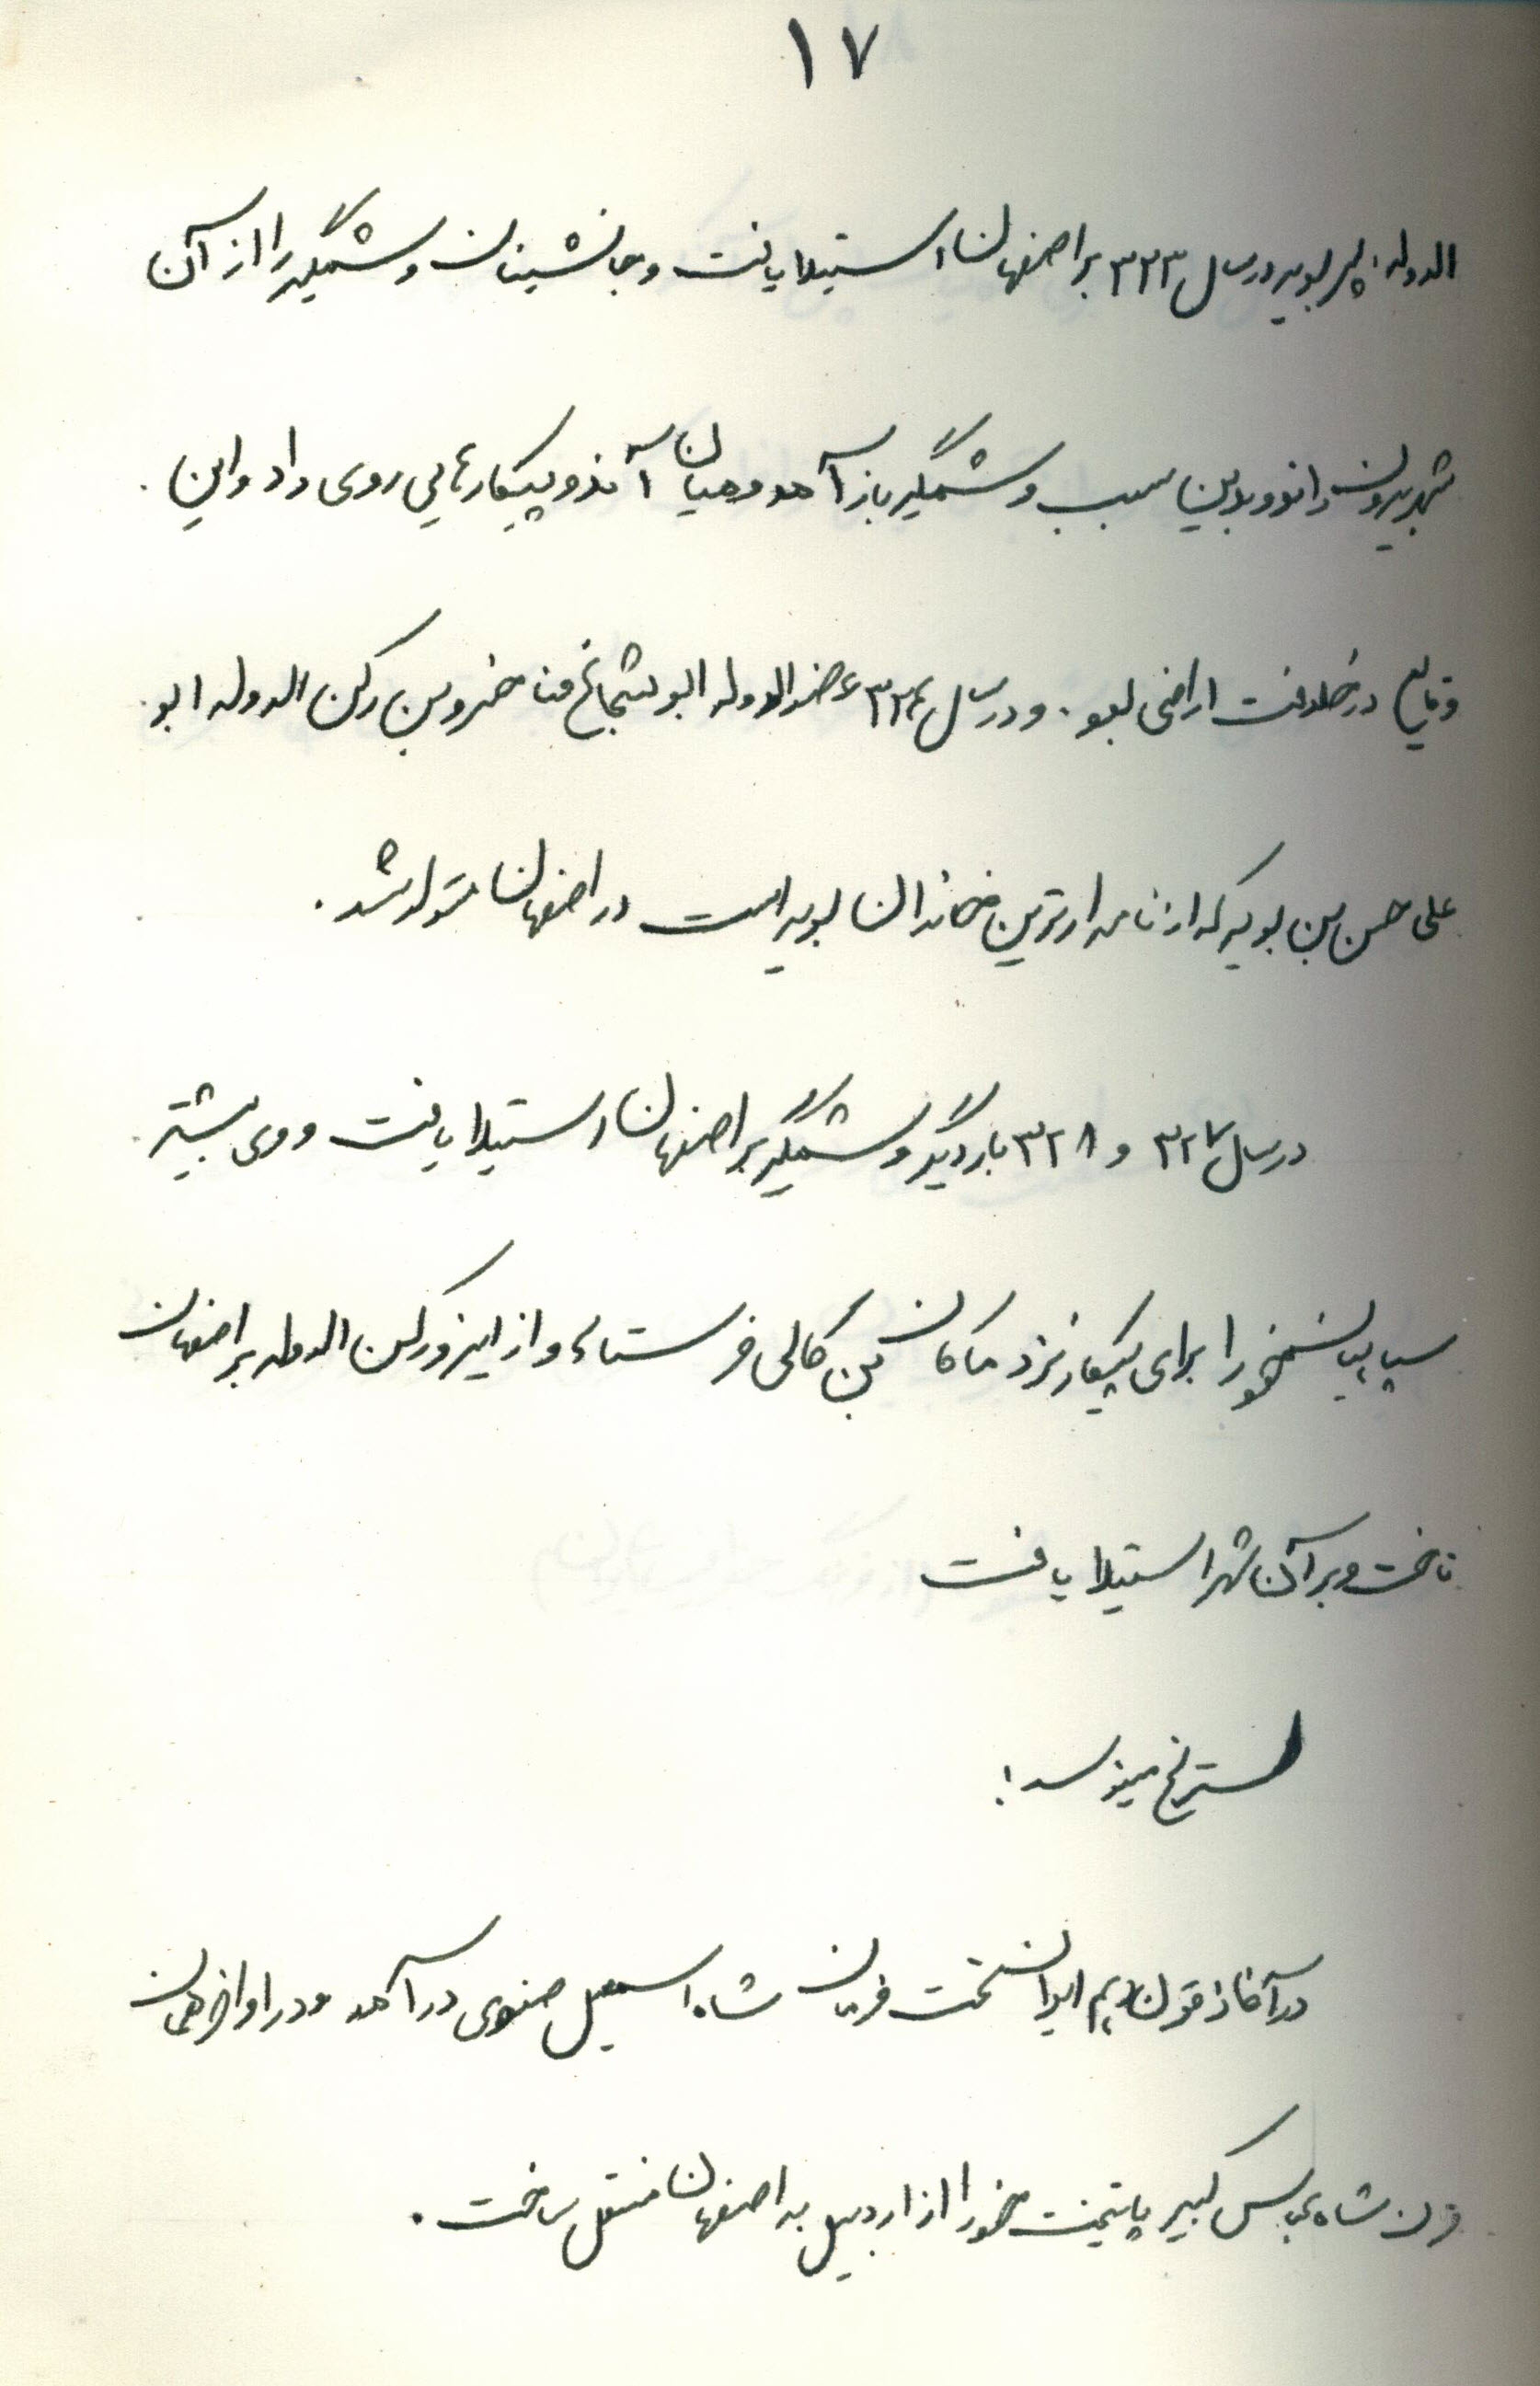 ۱۷
الدوله پسر بویه در سال ۳۲۳ بر اصفهان استیلا یافت و جانشینان وشمگیر را از آن
شهر بیرون راند و بدین سبب وشمگیر باز آمد و میان آندو پیکارهایی روی داد و این
وقایع در خلافت راضی بود. و در سال ۳۲۴ عضدالدوله ابو شجاع فنا خسرو بن رکن الدوله ابو
علی حسن بن بویه که از نامدارترین خاندان بویه است در اصفهان متولد شد.
در سال ۳۲۷ و ۳۲۸ بار دیگر وشمگیر بر اصفهان استیلا یافت و وی بیشتر
سپاهیان خود را برای پیکار نزد ماکان بن کالی فرستاد و از اینرو رکن الدوله بر اصفهان
تاخت و بر آن شهر استیلا یافت
لسترنج مینویسد:
در آغاز قرن دهم ایران تحت فرمان شاه اسمعیل صفوی در آمد و در اواخر همان
قرن شاه عباس کبیر پایتخت خود را از اردبیل به اصفهان منتقل ساخت.